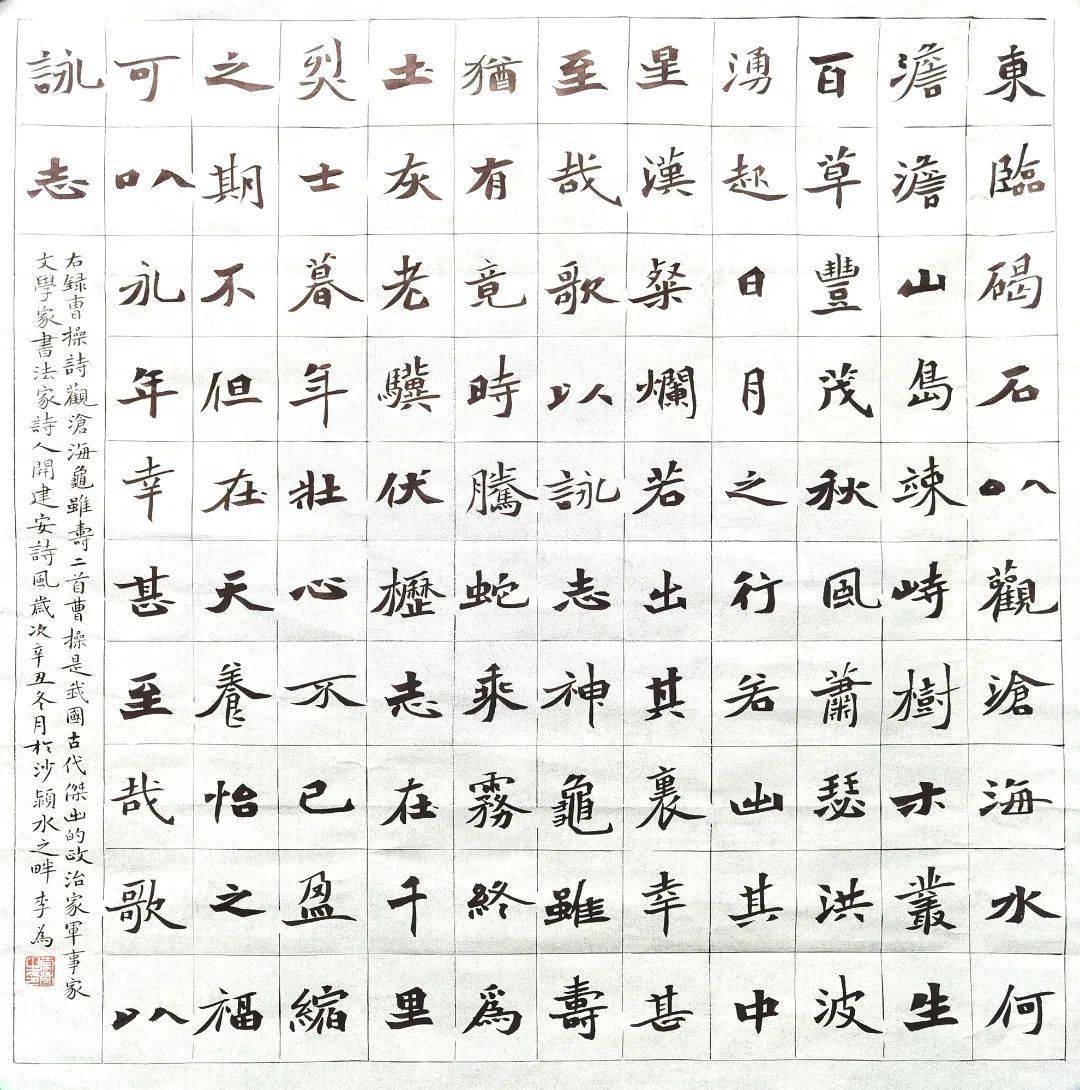 東臨碣石㕥觀滄海水何
澹澹山島竦峙樹木叢生
百草豐茂秋風蕭瑟洪波
湧起日月之行若出其中
星漢粲爛若出其裏幸甚
至哉歌以詠志神龜雖壽
猶有竟時騰蛇乘霧終爲
土灰老驥伏櫪志在千里
烈士暮年壯心不已盈縮
之期不但在天養怡之福
可㕥永年幸甚至哉歌以
詠志
右録曹操詩觀滄海龜雖壽二首曹操是我國古代傑出的政治家軍事家
文學家書法家詩人開建安詩風歲次辛丑冬月於沙潁水之畔李為